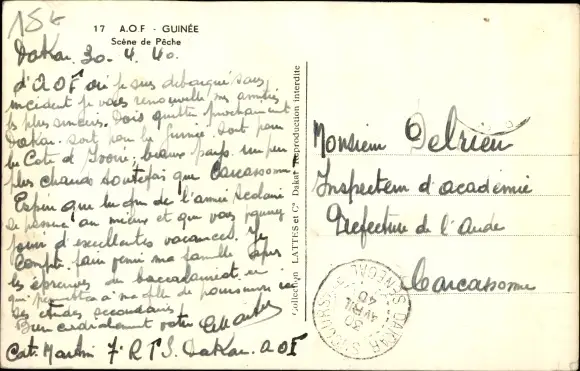 15 €
17 A.O.F - GUINÉE
Scène de Pêche
Dakar 30. 4. 40.
d'AOF où je suis débarqué sans
incident je vous renouvelle mes amitiés
les plus sincères. Dois quitter prochainement
Dakar soit pour la Guinée soit pour
la Côte d'Ivoire; beaux pays. Un peu
plus chauds toutefois que Carcassonne!
Espère que la fin de l'année scolaire
se passera au mieux et que vous pourrez
jouir d'excellentes vacances. Je
compte faire venir ma famille après
les épreuves du baccalauréat
qui permettra à ma fille de poursuivre ici
ses études secondaires
Bien cordialement votre
Cat. Martin 7e R T S. Dakar AOF
Collection LATTES et Cie Dakar Reproduction interdite
Monsieur Delrieu
Inspecteur d'académie
Préfecture de l'Aude
Carcassonne
DAKAR
30
AVRIL
40
SENEGAL